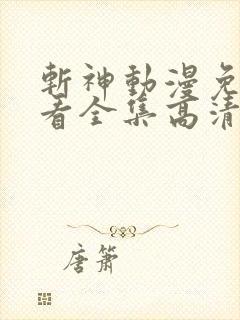 斬神動漫免
看全集高清
唐簫